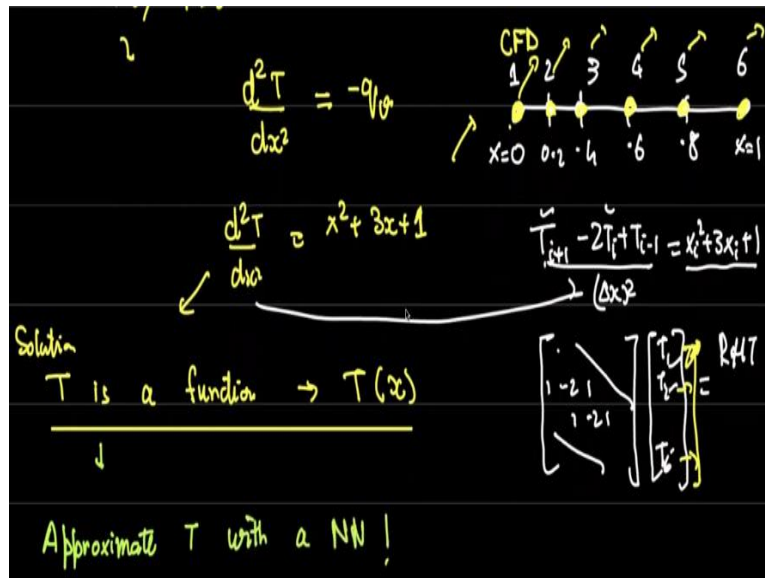 2
d²T/dx² = -qv
CFD
1 2 3 4 5 6
x=0 0.2 .4 .6 .8 x=1
d²T/dx² = x²+3x+1
(Tᵢ₊₁ -2Tᵢ+Tᵢ₋₁)/(Δx)² = xᵢ²+3xᵢ+1
Solution
T is a function → T(x)
1 -2 1
1 -2 1
T₁
T₂
T₆
=
Approximate T with a NN!